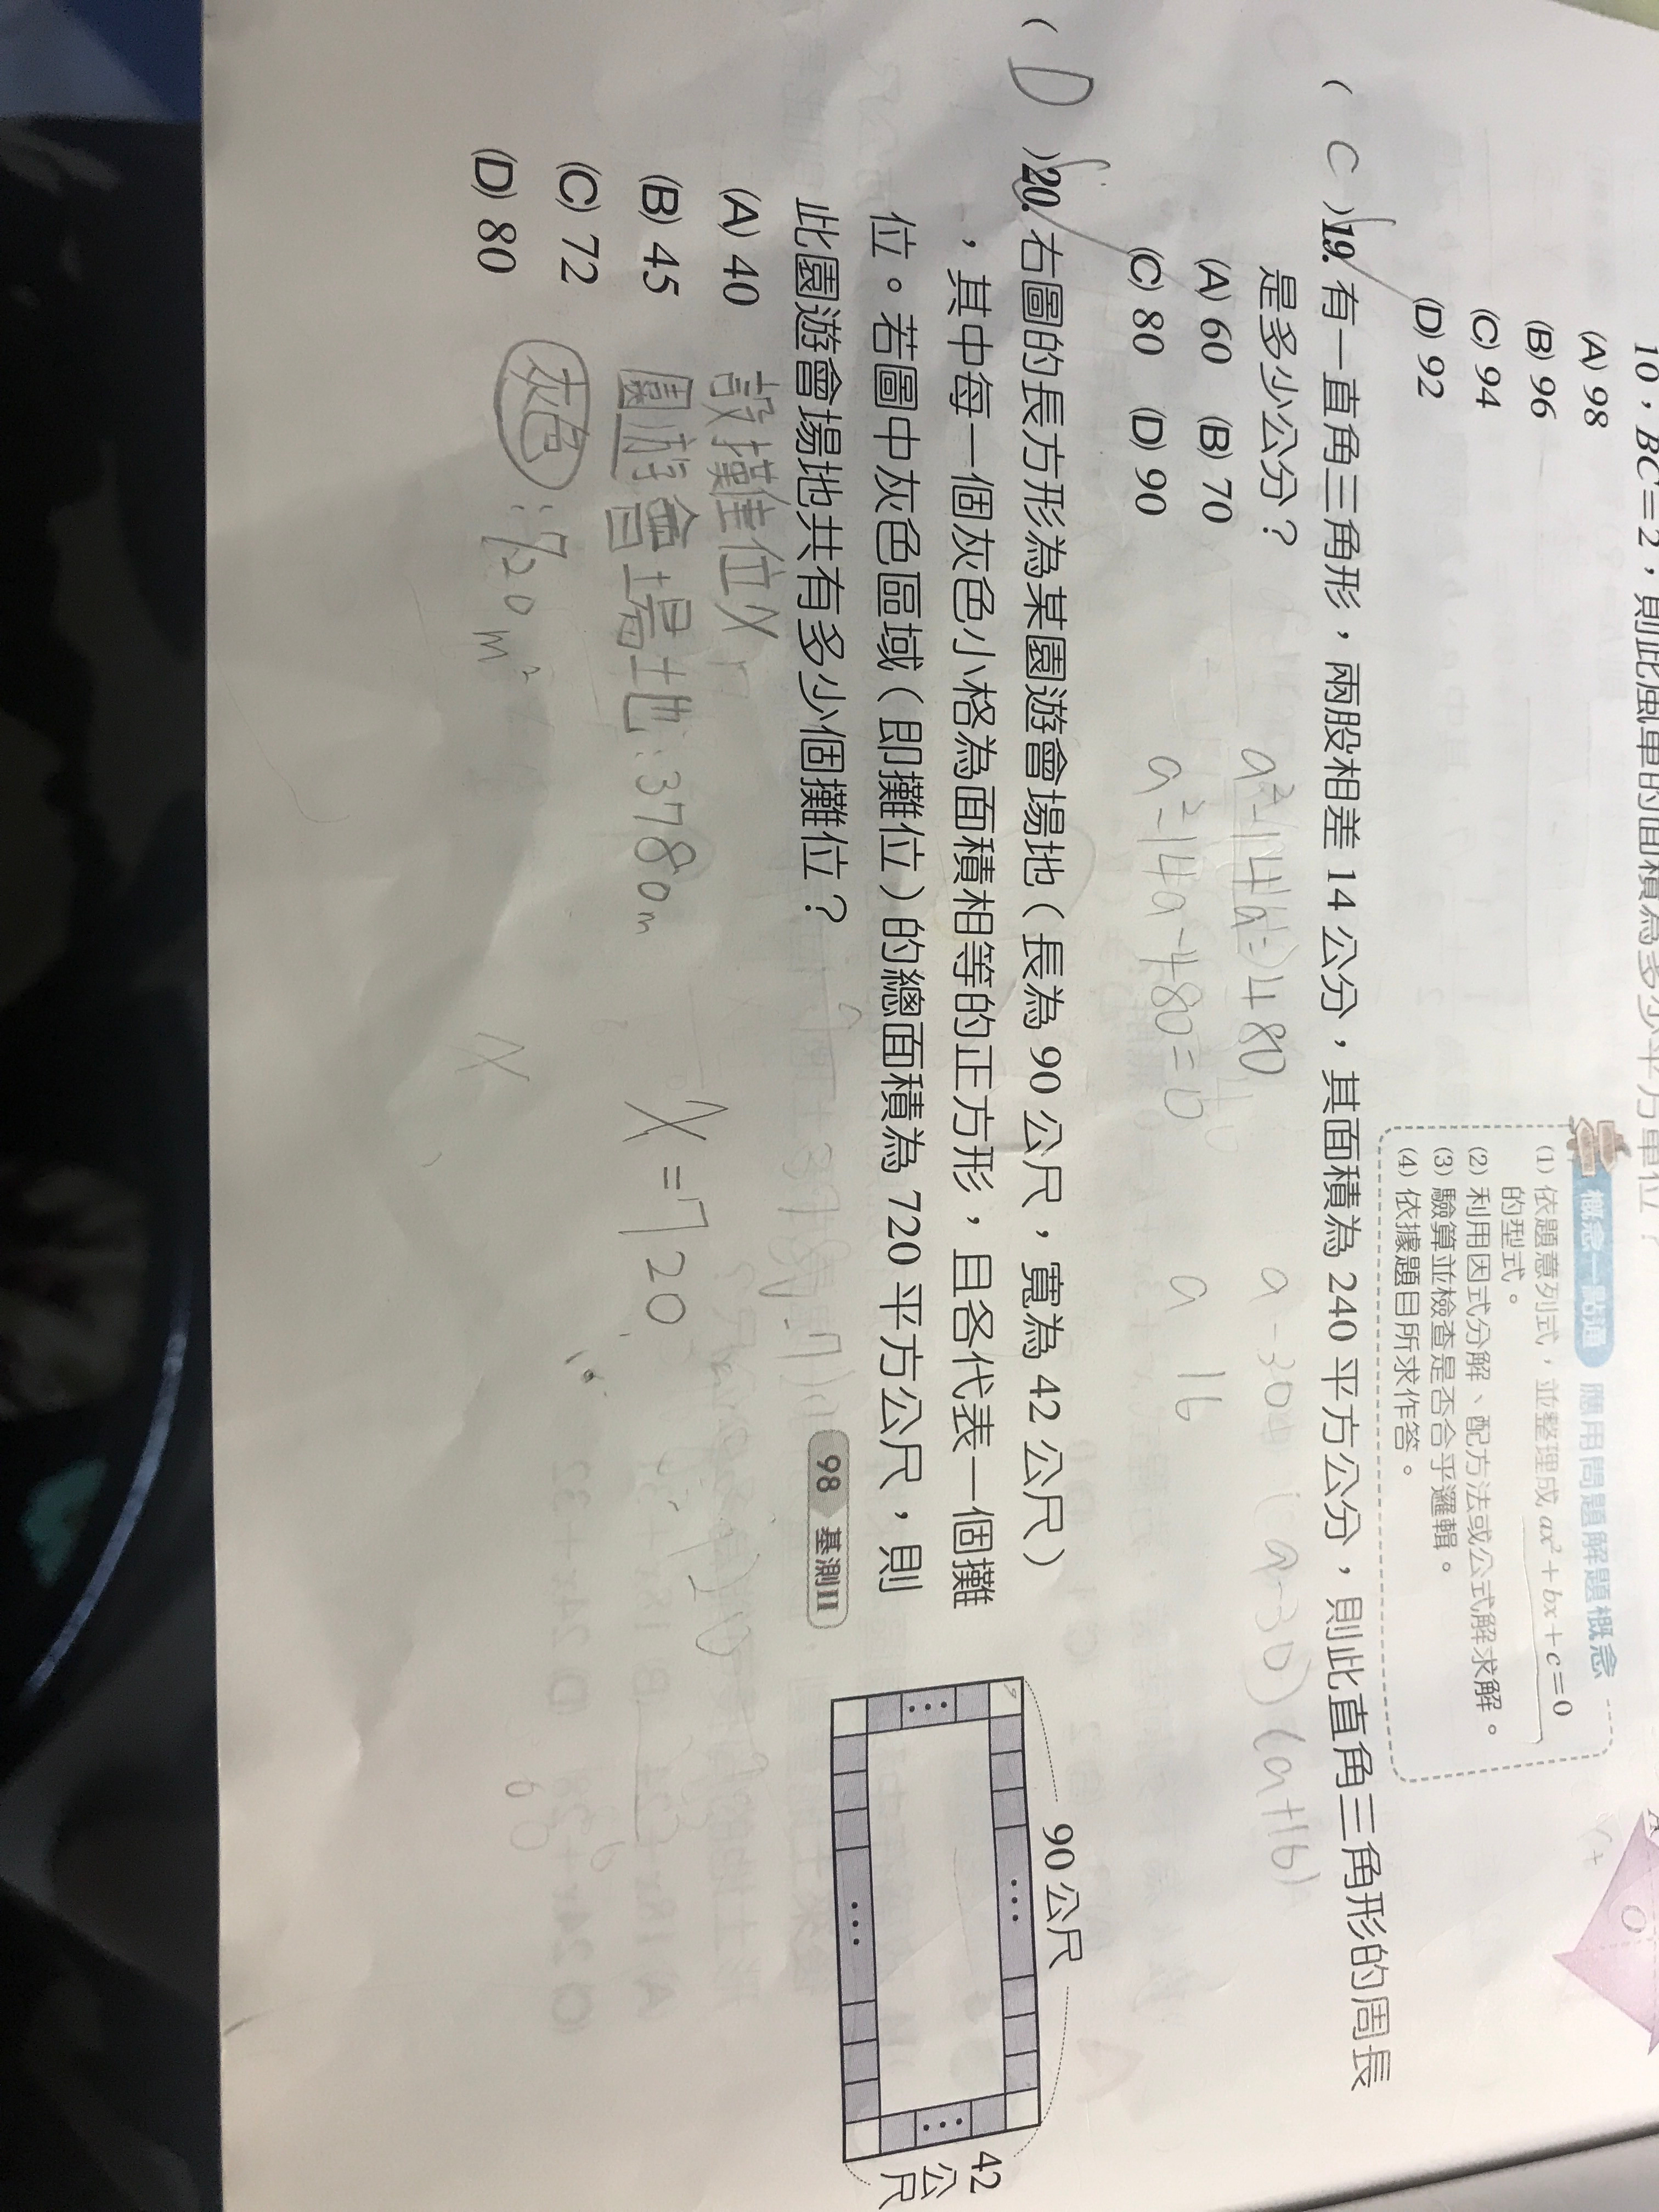 10，BC=2，則此風車的面積為多少平方單位？
(A) 98
(B) 96
(C) 94
(D) 92
概念一點通 應用問題解題概念
(1) 依題意列式，並整理成 ax²+bx+c=0
的型式。
(2) 利用因式分解、配方法或公式解求解。
(3) 驗算並檢查是否合乎邏輯。
(4) 依據題目所求作答。
( C )19. 有一直角三角形，兩股相差 14 公分，其面積為 240 平方公分，則此直角三角形的周長
是多少公分？
(A) 60 (B) 70
(C) 80 (D) 90
a²-14a=480
a²-14a-480=0
(a-30)(a+16)
a 16
( D )20. 右圖的長方形為某園遊會場地（長為 90 公尺，寬為 42 公尺）
，其中每一個灰色小格為面積相等的正方形，且各代表一個攤
位。若圖中灰色區域（即攤位）的總面積為 720 平方公尺，則
此園遊會場地共有多少個攤位？
98 基測II
(A) 40
(B) 45
(C) 72
(D) 80
90 公尺
42
公尺
設攤位x
園游會場地：3780m
灰色：720m²
x=720
x